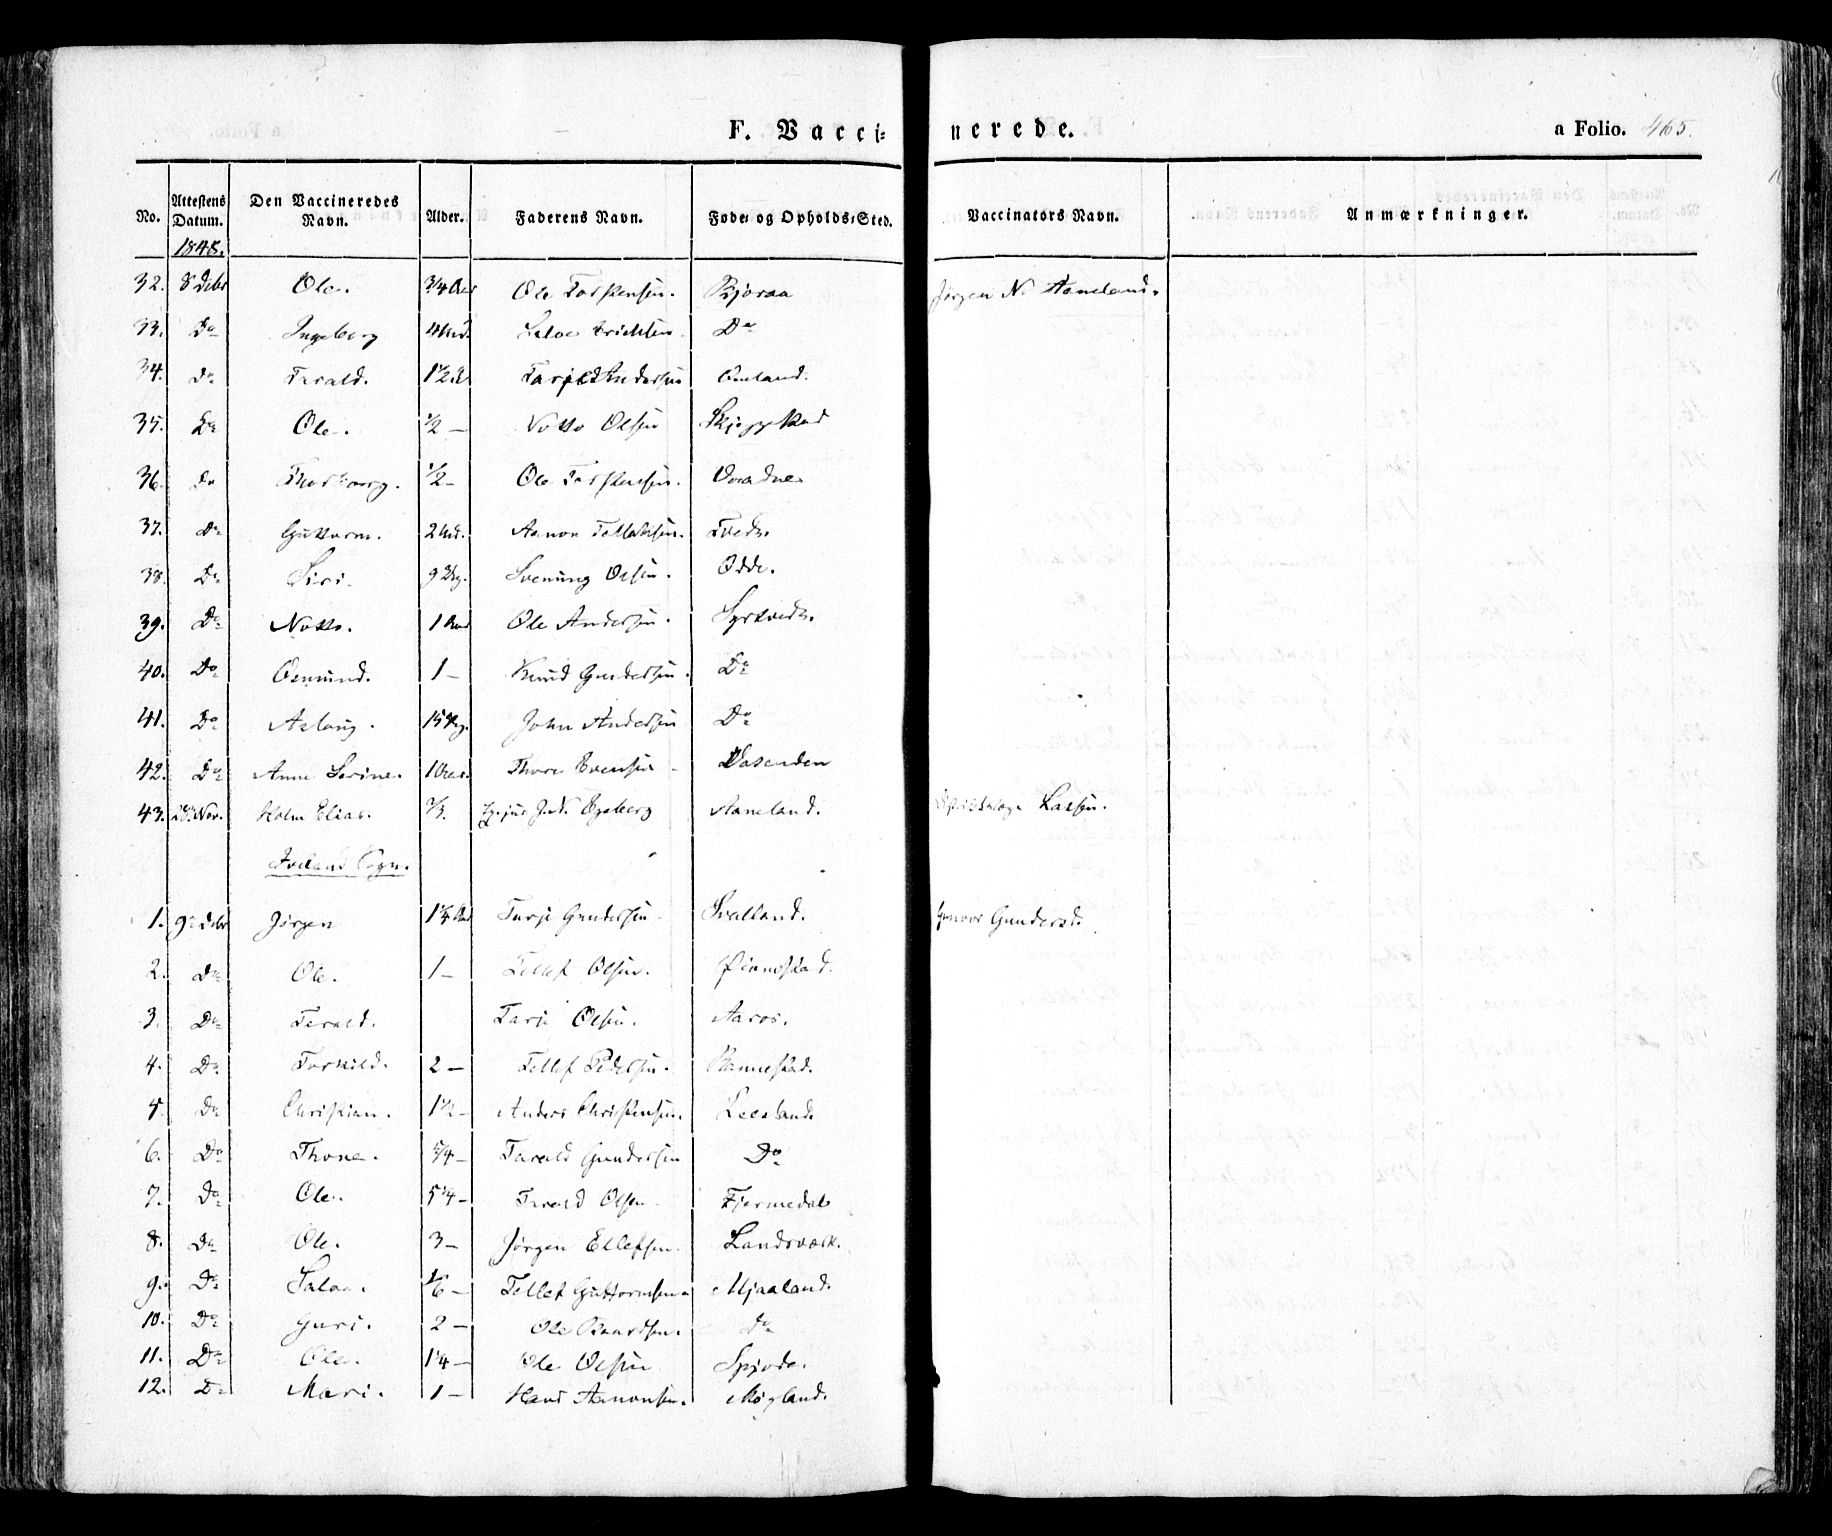 F. Vacci-nerede. a Folio. 465.
No. Attestens Datum. Den Vaccineredes Navn. Alder. Faderens Navn. Føde- og Opholds-Sted. Vaccinators Navn. Anmærkninger.
1848.
32. 8 Decbr Ole. 3/4 Ole Torstensen. Bjoraa Jørgen N. Aaneland.
33. Do Ingeborg Salve Erichsen Do
34. Do Tarald. 1 1/2 Tarjeld Andersen Omland.
35. Do Ole. 1/2 — Notto Olsen Skjeggestad
36. Do Thorborg. 1/2 — Ole Torstensen.
37. Do Guttorm. 2 Aar. Aanon Tellefsen. Tvedt.
38. Do Siri. 9 Svenung Olsen. Odde.
39. Do Notto. 1 Aar Ole Andersen. Syrtvedt.
40. Do Osmund. 1 — Knud Gundersen. Do
41. Do Asloug. 15 John Andersen Do
42. Do Anne Serine. Thore Evensen Vasenden
43. 28 Nov. Holm Elias. 2/3. J. N. Egeberg Aaneland. Lassen.
Iveland Sogn.
1. 9 Decbr Jørgen 1 1/4 Aar Tarje Gundersen Ivelland. Gunvor Gundersd.
2. Do Ole. 1 — Tellef Olsen.
3. Do Terald. Tarje Olsen. Aaros.
4. Do Torkild. 2 — Tellef Pedersen. Rannestad.
5. Do Christian. 1 1/2 — Anders Christensen. Leesland
6. Do Thone. 5/4 — Tarald Gundersen Do
7. Do Ole. 5 1/4 — Tarald Olsen Fjermedal
8. Do Ole. 3 — Jørgen Ellefsen. Landsværk.
9. Do Salve. 1/6 — Tellef Guttormsen Mjaaland.
10. Do Guri. 2 — Ole Baardsen. Do
11. Do Ole. 1 1/4 — Ole Olsen Spjode.
12. Do Mari. 1 — Hans Aanonsen. Møgland.